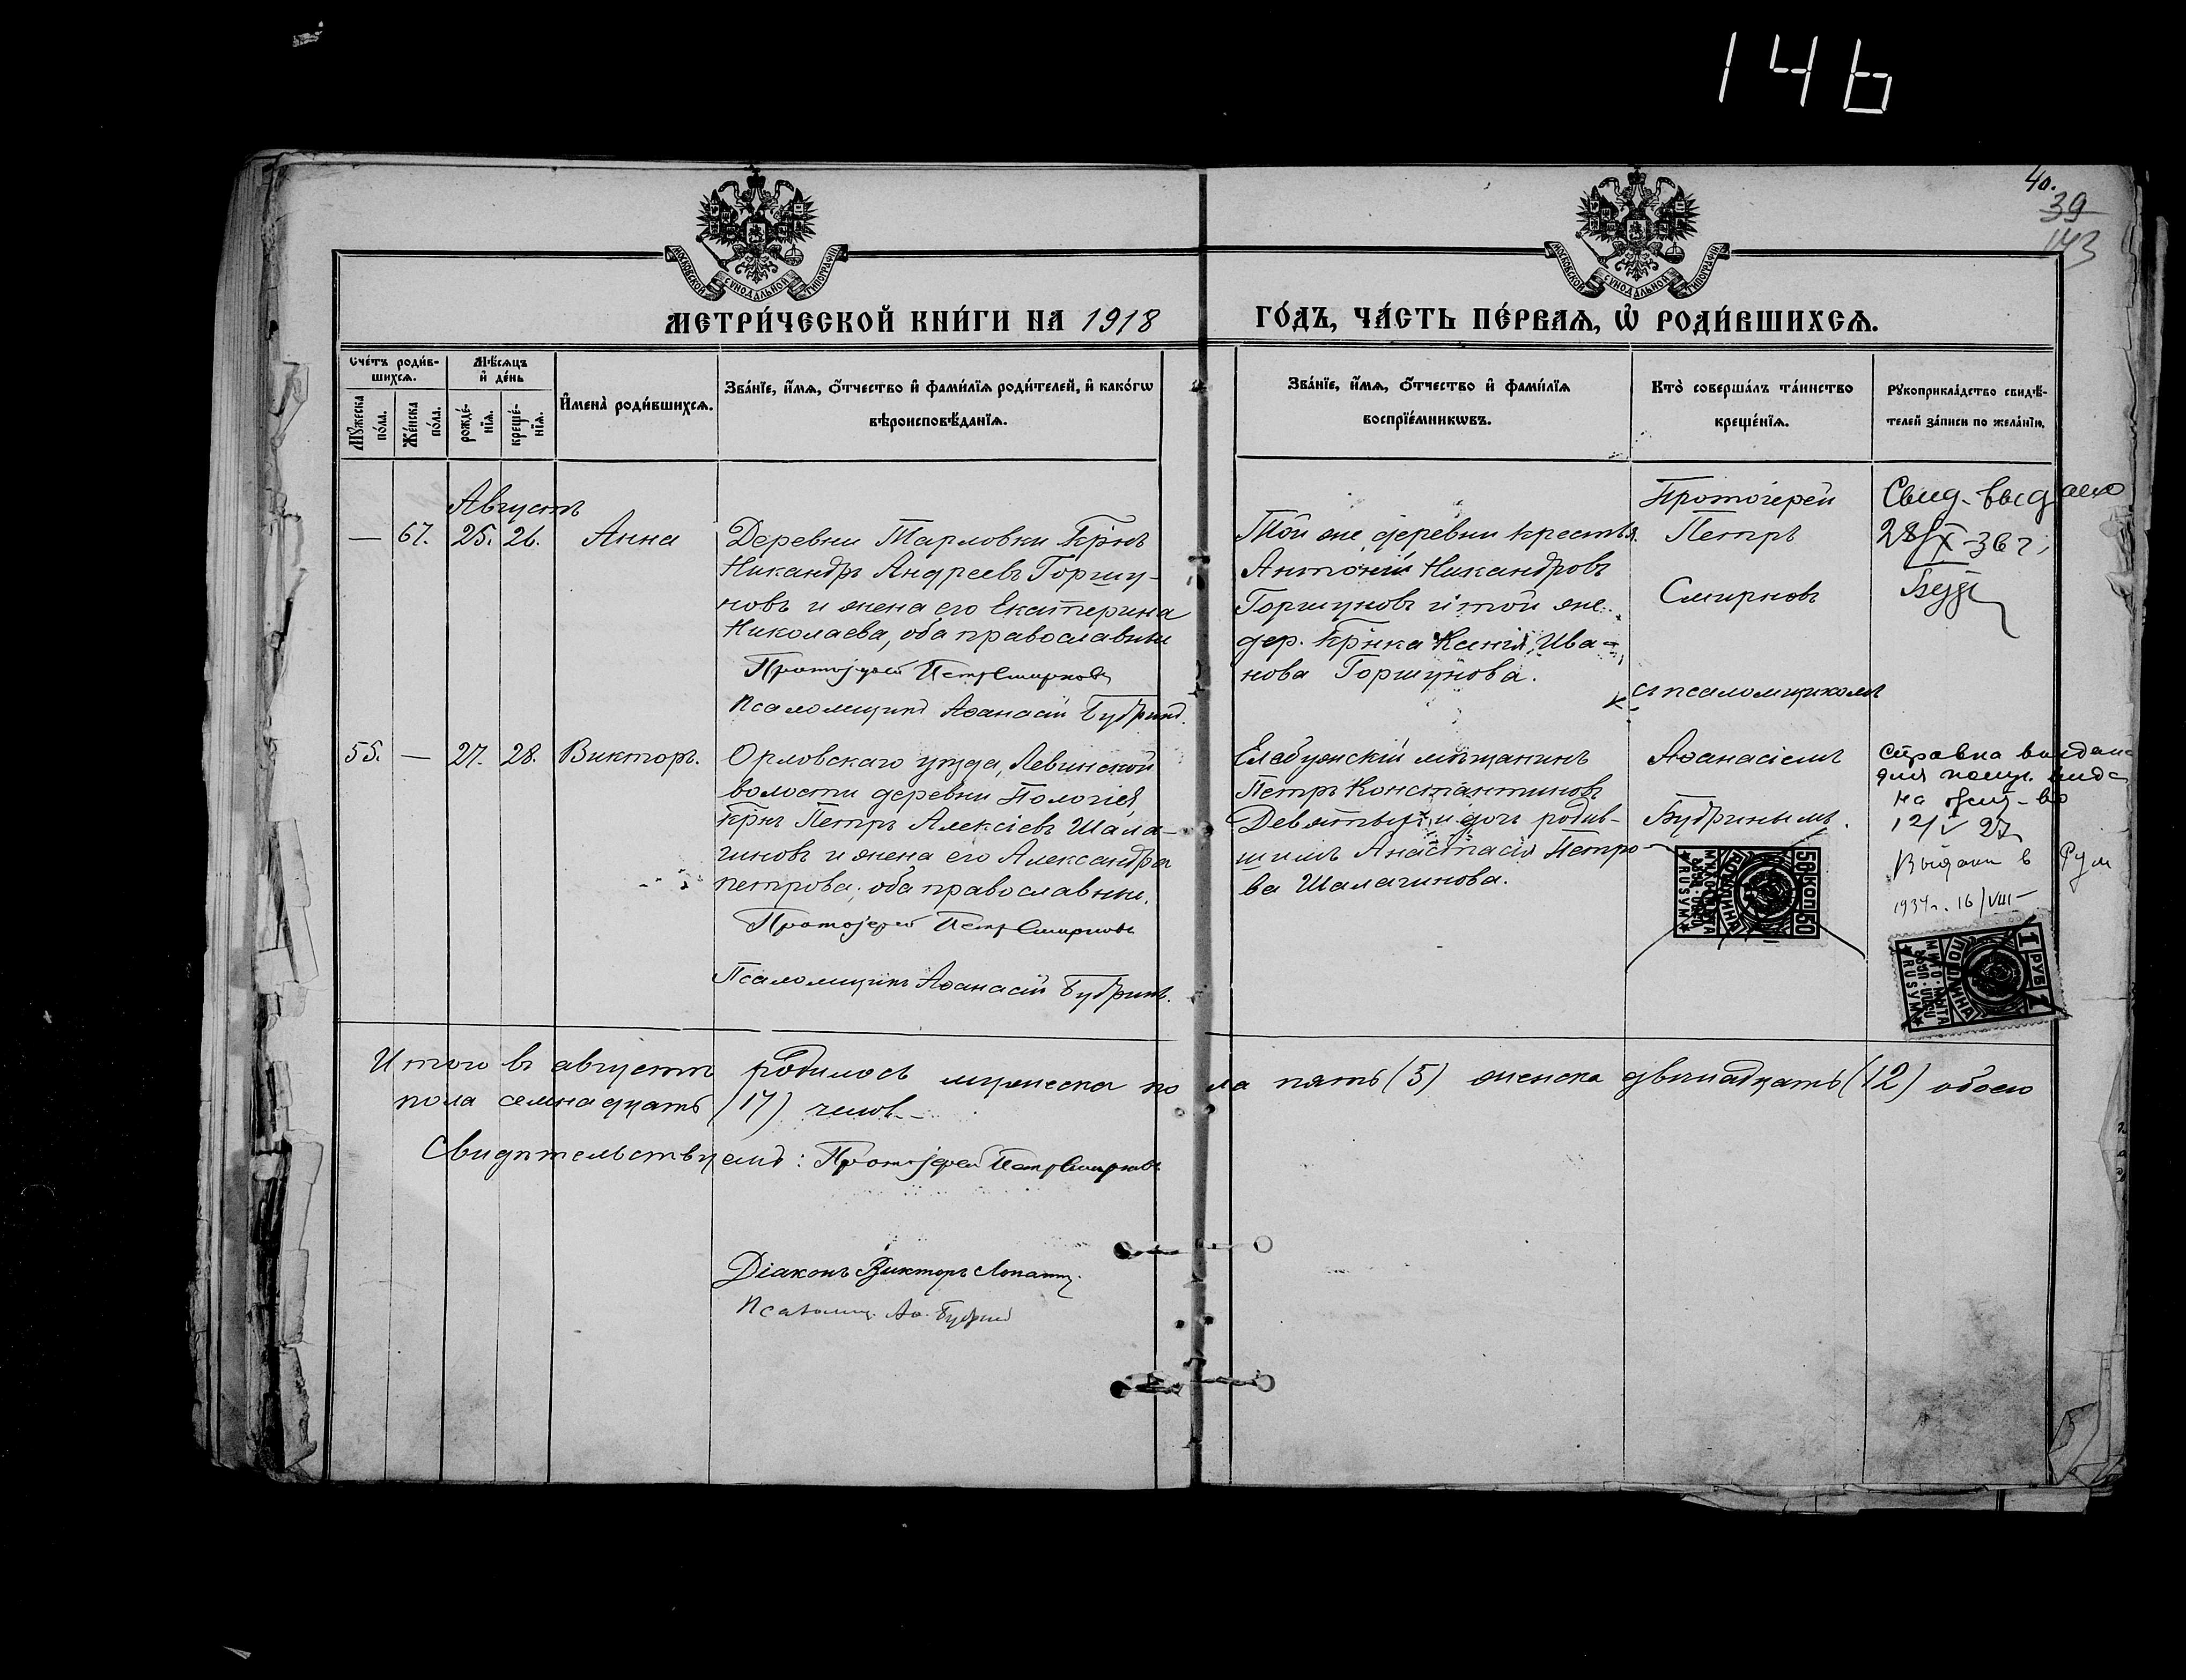 146
40.
39
143
МОСКОВСКОЙ СѴНОДАЛЬНОЙ ТИПОГРАФІИ
МОСКОВСКОЙ СѴНОДАЛЬНОЙ ТИПОГРАФІИ
МЕТРИ́ЧЕСКОЙ КНИ́ГИ НА 1918 ГО́ДЪ, ЧА́СТЬ ПЕ́РВАѦ, Ѡ҆ РОДИ́ВШИХСѦ.
Сче́тъ роди́вшихсѧ.
Мѣ́сѧцъ и҆ де́нь
Мꙋ́жеска по́ла.
Же́нска по́ла.
рожде́нїѧ.
креще́нїѧ.
И҆мена̀ роди́вшихсѧ.
Зва́нїе, и҆́мѧ, ѻ҆́тчество и҆ фами́лїѧ роди́телей, и҆ како́гѡ
вѣроисповѣ́данїѧ.
Зва́нїе, и҆́мѧ, ѻ҆́тчество и҆ фами́лїѧ
воспрїе́мникѡвъ.
Кто̀ соверша́лъ та́инство
креще́нїѧ.
Рꙋкоприкла́дство свидѣ́-
телей за́писи по жела́нїю.
Августъ
— 67. 25. 26. Анна
Деревни Тарловки Крнъ
Никандръ Андреевъ Горшу-
новъ и жена его Екатерина
Николаева, оба православные
Протоіерей Петръ Смирновъ
Псаломщикъ Аѳанасій Бубринъ.
Той же деревни крестья.
Антоній Никандровъ
Горшуновъ и той же
дер. Крнка Ксенія Ива-
нова Горшунова.
Протоіерей
Петръ
Смирновъ
съ псаломщикомъ
Свид. выдано
28/X-36 г.
55. — 27. 28. Викторъ.
Орловскаго уѣзда, Левинской
волости деревни Пологія
Крнъ Петръ Алексіевъ Шала-
гиновъ и жена его Александра
Петрова, оба православные.
Протоіерей Петръ Смирновъ
Псаломщикъ Аѳанасій Бубринъ.
Елабужскій мѣщанинъ
Петръ Константиновъ
Девятыхъ и дочь родив-
шихъ Анастасія Петро-
ва Шалагинова.
Аѳанасіемъ
Бубринымъ.
Справка выдана
для получ. вида
на жит-во
12/V 27
Выдана в
1934г. 16/VIII
50 КОП 50
1 РУБ 1
Итого въ августѣ родилось мужеска пола пять (5) женска двѣнадцать (12) обоего
пола семнадцать (17) челов.
Свидѣтельствуемъ: Протоіерей Петръ Смирновъ
Діаконъ Викторъ
Псаломщ. Аѳ. Бубринъ